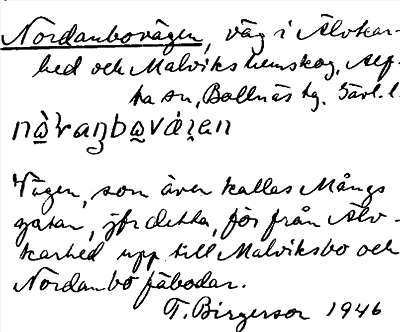 Nordanbovägen, väg i Älvkar-
hed och Malvikshemskog, Alf-
ta sn, Bollnäs tg. Gävl. l.
Vägen, som även kallas Mångs
gatan, jfr detta, för från Älv-
karhed upp till Malviksbo och
Nordanbo fäbodar.
T. Birgersor 1946